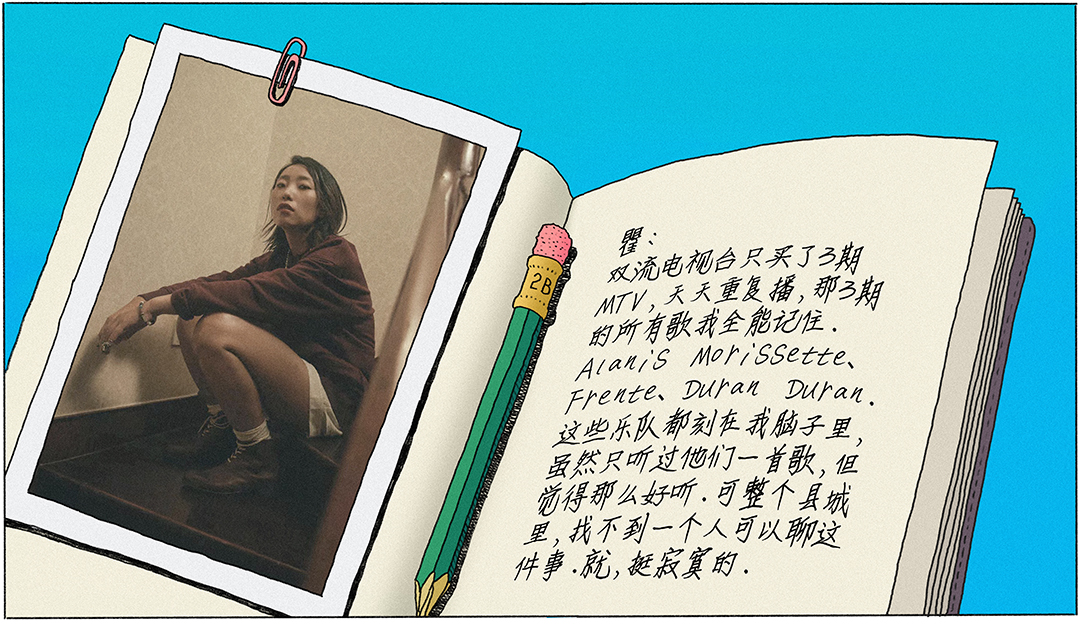 2B
瞿：
双流电视台只买了3期
MTV，天天重复播，那3期
的所有歌我全能记住．
Alanis Morissette、
Frente、Duran Duran．
这些乐队都刻在我脑子里，
虽然只听过他们一首歌，但
觉得那么好听．可整个县城
里，找不到一个人可以聊这
件事．就，挺寂寞的．